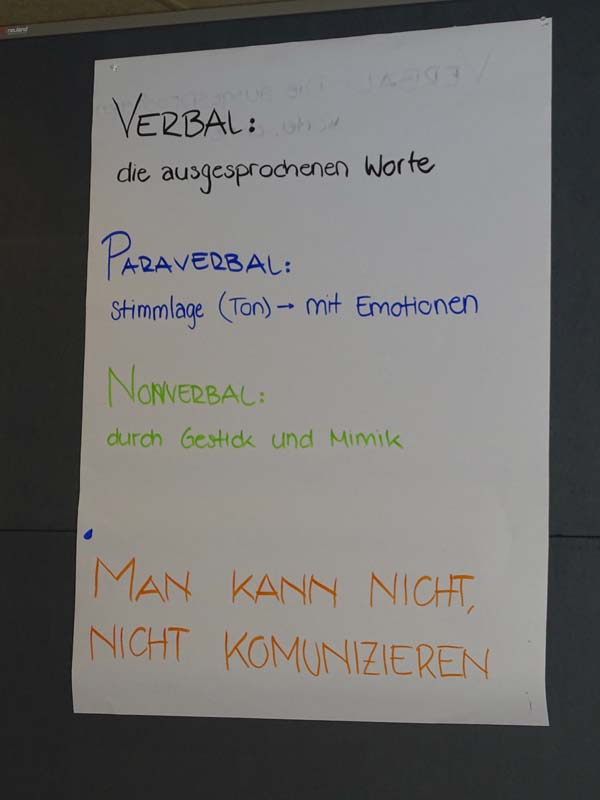 neuland
VERBAL:
die ausgesprochenen Worte
PARAVERBAL:
Stimmlage (Ton) → mit Emotionen
NONVERBAL:
durch Gestick und Mimik
MAN KANN NICHT,
NICHT KOMUNIZIEREN